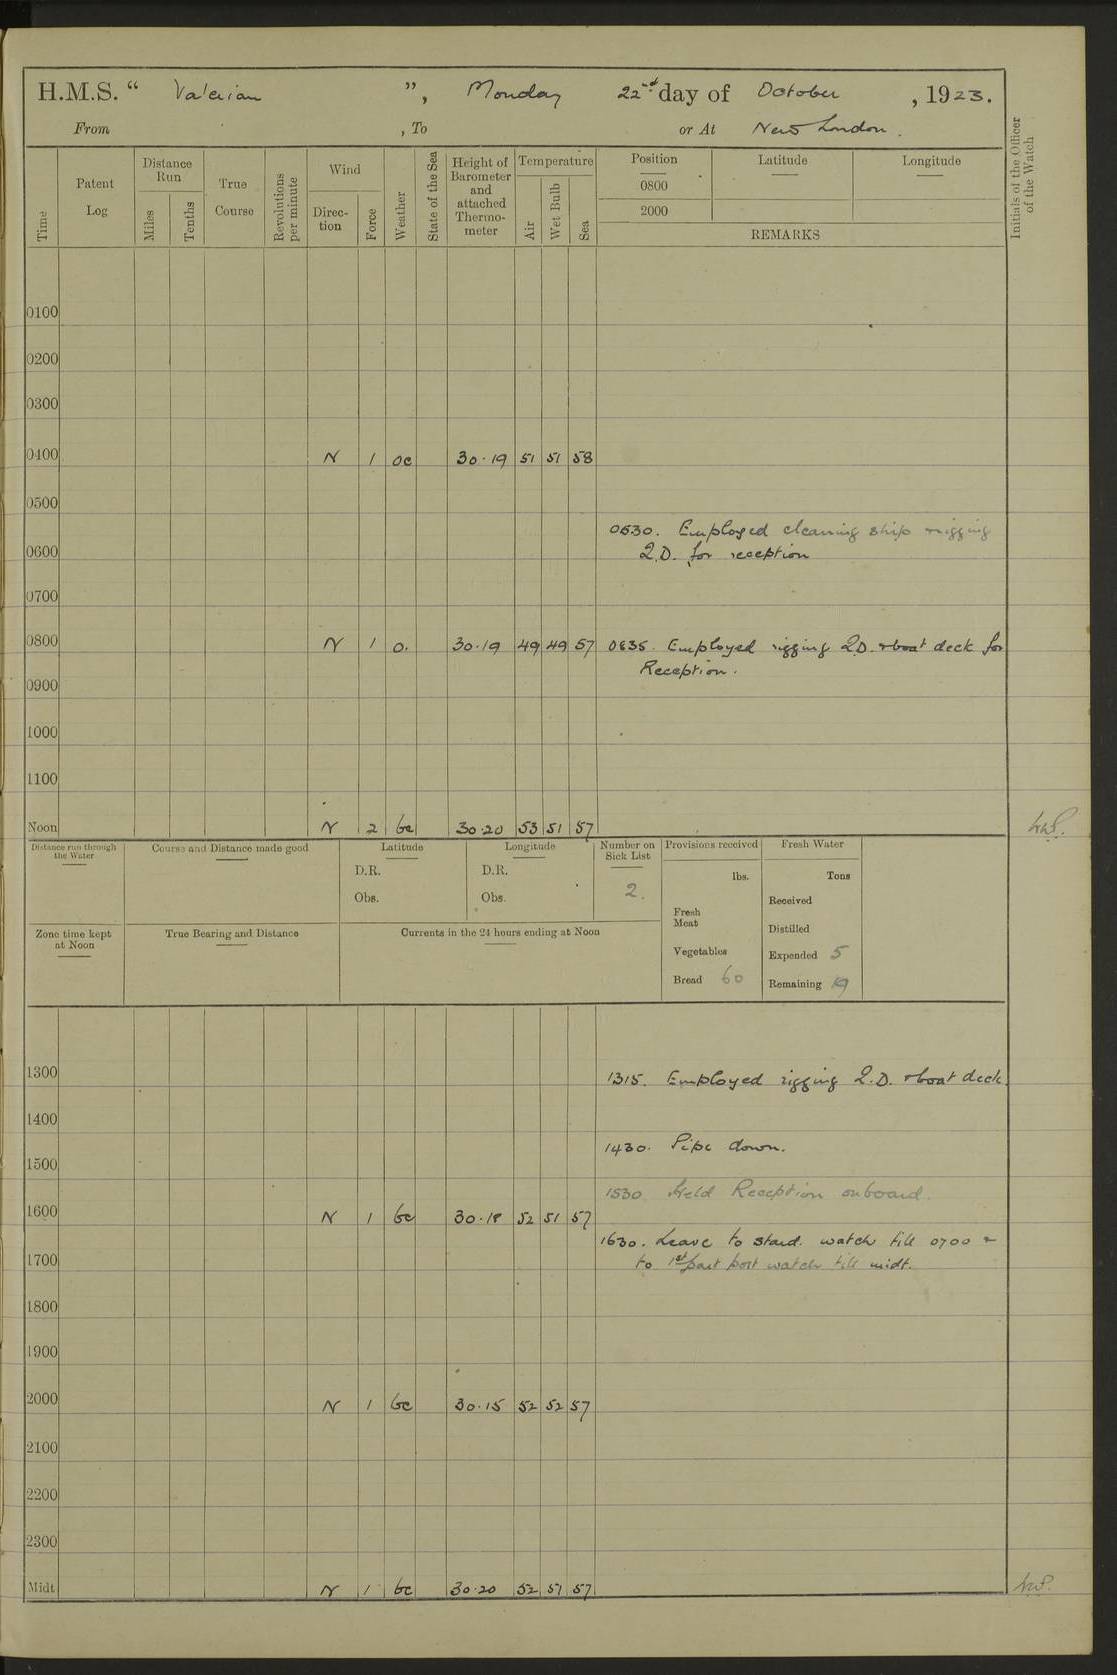 H.M.S. “ Valerian ”, Monday 22nd day of October , 1923.
From , To or At New London .
Time
Patent Log
Distance Run
Miles
Tenths
True Course
Revolutions per minute
Wind
Direc-tion
Force
Weather
State of the Sea
Height of Barometer and attached Thermo-meter
Temperature
Air
Wet Bulb
Sea
Position
Latitude
Longitude
0800
2000
REMARKS
Initials of the Officer of the Watch
0100
0200
0300
0400 N 1 oc 30.19 51 51 58
0500
0530. Employed cleaning ship rigging
0600 Q.D. for reception
0700
0800 N 1 o. 30.19 49 49 57 0835. Employed rigging Q.D. & boat deck for
Reception.
0900
1000
1100
Noon N 2 bc 30.20 53 51 57
Distance run through the Water
Course and Distance made good
Latitude
D.R.
Obs.
Longitude
D.R.
Obs.
Number on Sick List
2.
Provisions received
lbs.
Fresh Meat
Vegetables
Bread 60
Fresh Water
Tons
Received
Distilled
Expended 5
Remaining 19
Zone time kept at Noon
True Bearing and Distance
Currents in the 24 hours ending at Noon
1300 1315. Employed rigging Q.D. & boat deck.
1400
1430. Pipe down.
1500
1530. Held Reception onboard.
1600 N 1 bc 30.18 52 51 57
1630. Leave to stard. watch till 0700 &
1700 to 1st part port watch till midt.
1800
1900
2000 N 1 bc 30.15 52 52 57
2100
2200
2300
Midt N 1 bc 30.20 52 51 57